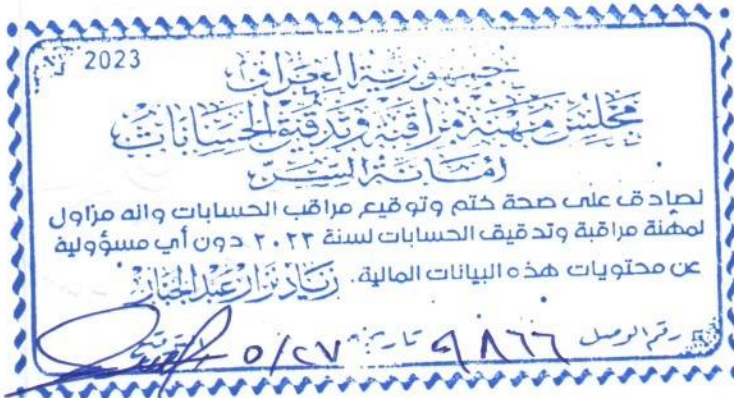 2023
جمهورية العراق
مجلس مهنة مراقبة وتدقيق الحسابات
امانة السر
نصادق على صحة ختم وتوقيع مراقب الحسابات وانه مزاول
لمهنة مراقبة وتدقيق الحسابات لسنة ٢٠٢٣ دون أي مسؤولية
عن محتويات هذه البيانات المالية. زياد نزار عبد الجبار
رقم الوصل ٩٨٦٦ تاريخه ٥/٢٧ التوقيع